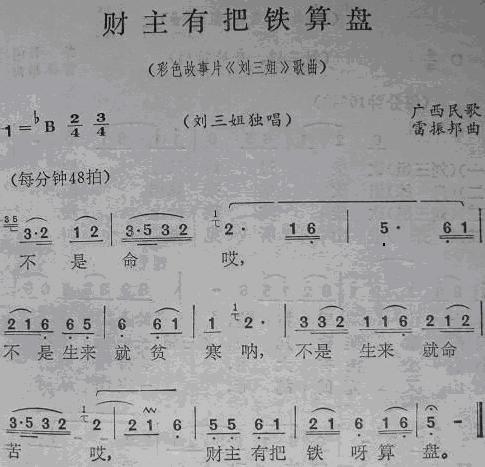 财主有把铁算盘
（彩色故事片《刘三姐》歌曲）
1=♭B 2/4 3/4 （刘三姐独唱） 广西民歌
雷振邦曲
（每分钟48拍）
35 3·2 1 2 | 3·5 3 2 1 2· 1 6 | 5· 6 1 |
不是命哎，
2 1 6 6 5 | 6 6 1 | 1 1 2· | 3 3 2 1 1 6 2 1 2 |
不是生来就贫寒呐，不是生来就命
3·5 3 2 1 2 | 2 1 6 | 5 5 6 1 | 2 1 6 1 6 | 5 - ‖
苦哎，财主有把铁呀算盘。